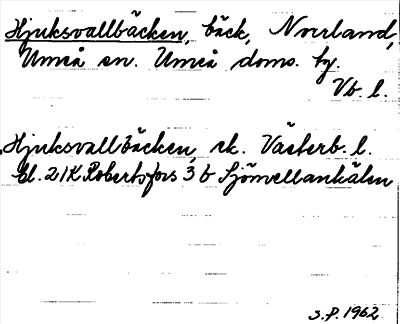 Hjuksvallbäcken, bäck, Norrland,
Umeå sn. Umeå doms. hg.
Vb. l.
Hjuksvallbäcken, ek. Västerb. l.
bl. 21K Robertsfors 3 b Sjömellankälen
S.P. 1962